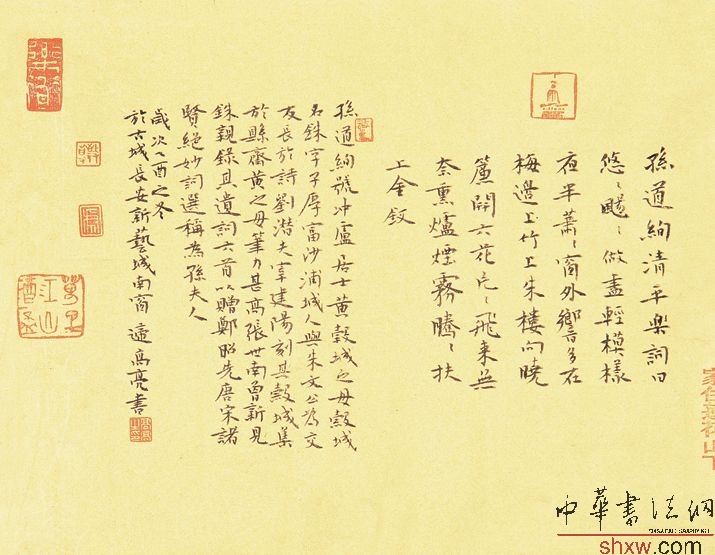 孫道絢清平樂詞曰
悠々颺々做盡輕模樣
夜半蕭々窗外響多在
梅邊上竹上朱樓向曉
簾開六花片々飛來無
奈熏爐煙霧騰々扶
上金釵
孫道絢號冲虛居士黃穀城之母穀城
名銖字子厚富沙浦城人與朱文公為交
友長於詩劉潜夫宰建陽刻其穀城集
於縣齋黃之母筆力甚高張世南曾新見
銖親錄其遺詞六首以贈鄭昭先唐宋諸
賢絕妙詞選稱為孫夫人
歲次乙酉之冬
於古城長安新藝城南窗 遠高亮書
中華書法網
shxw.com